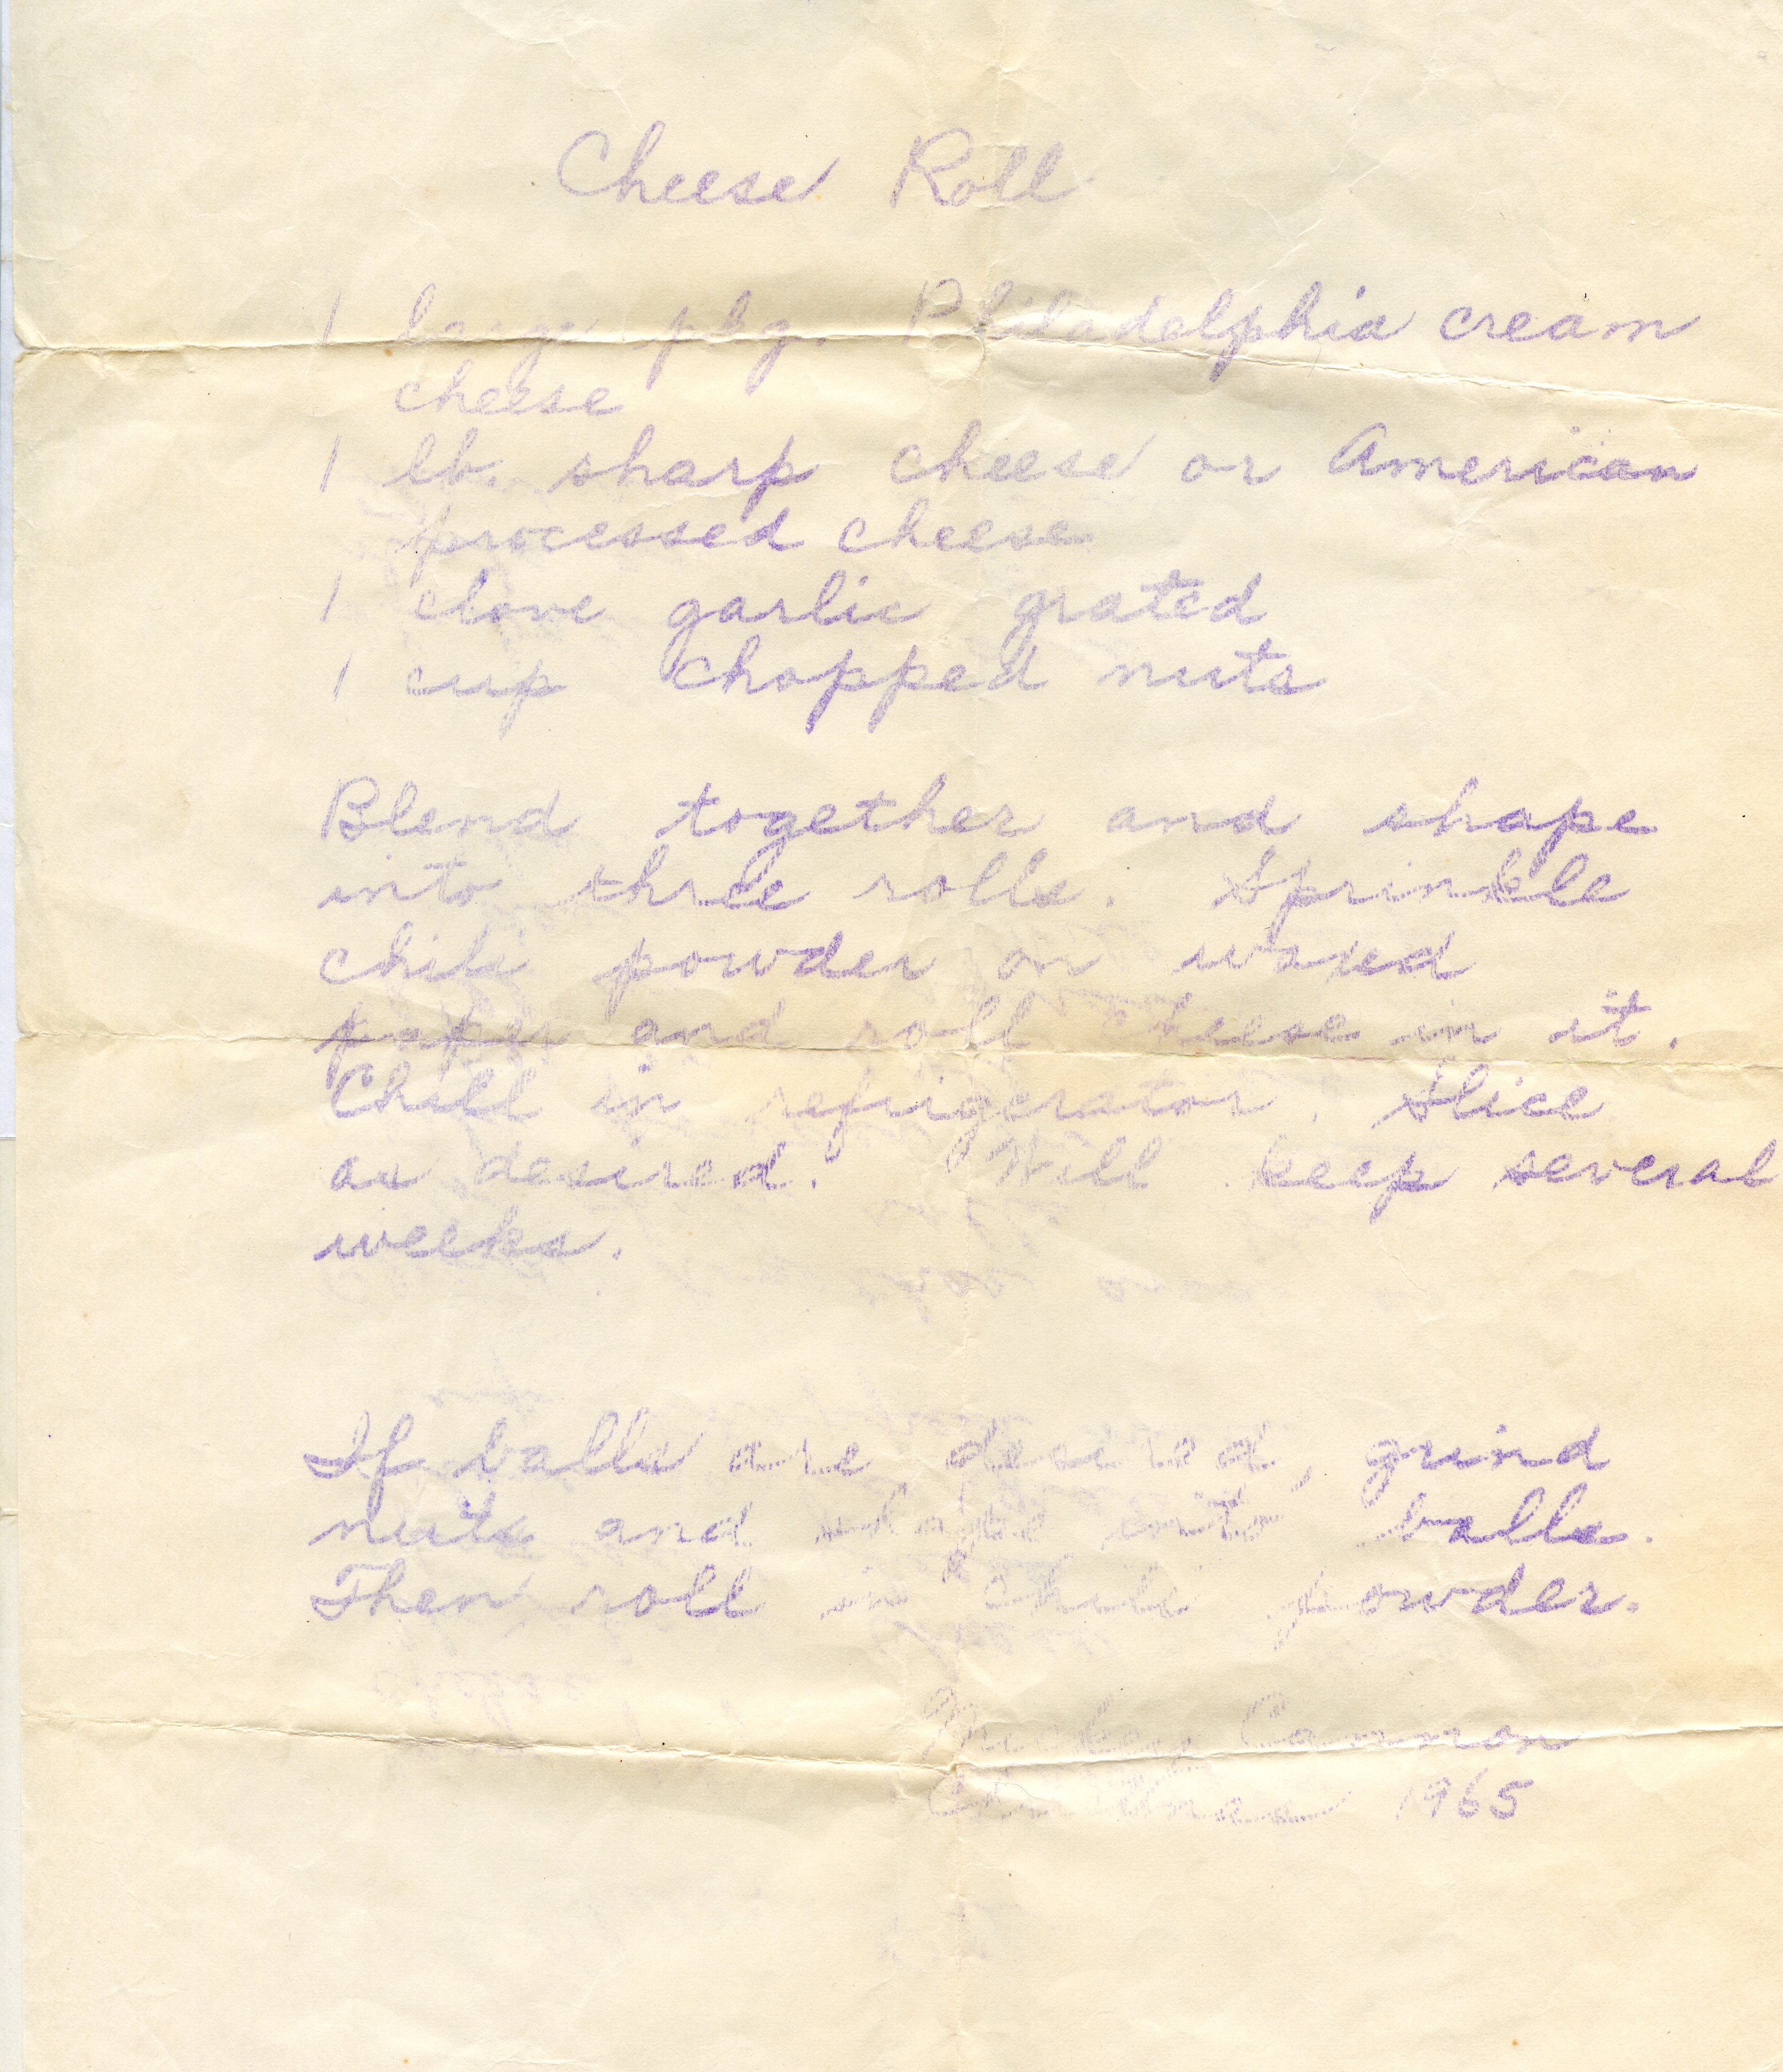 Cheese Roll
1 large pkg. Philadelphia cream
cheese
1 lb. sharp cheese or American
processed cheese
1 clove garlic grated
1 cup chopped nuts
Blend together and shape
into three rolls. Sprinkle
chili powder on waxed
paper and roll cheese in it.
Chill in refrigerator. Slice
as desired. Will keep several
weeks.
If balls are desired, grind
nuts and shape into balls.
Then roll in chili powder.
Cannon
1965